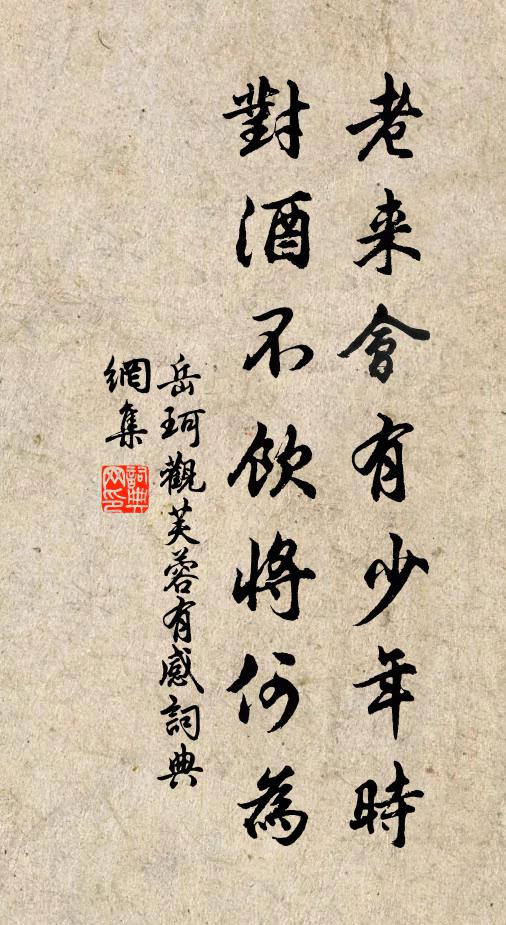 老来會有少年時
對酒不飲將何為
岳珂觀芙蓉有感詞典
網集
詞典
网印